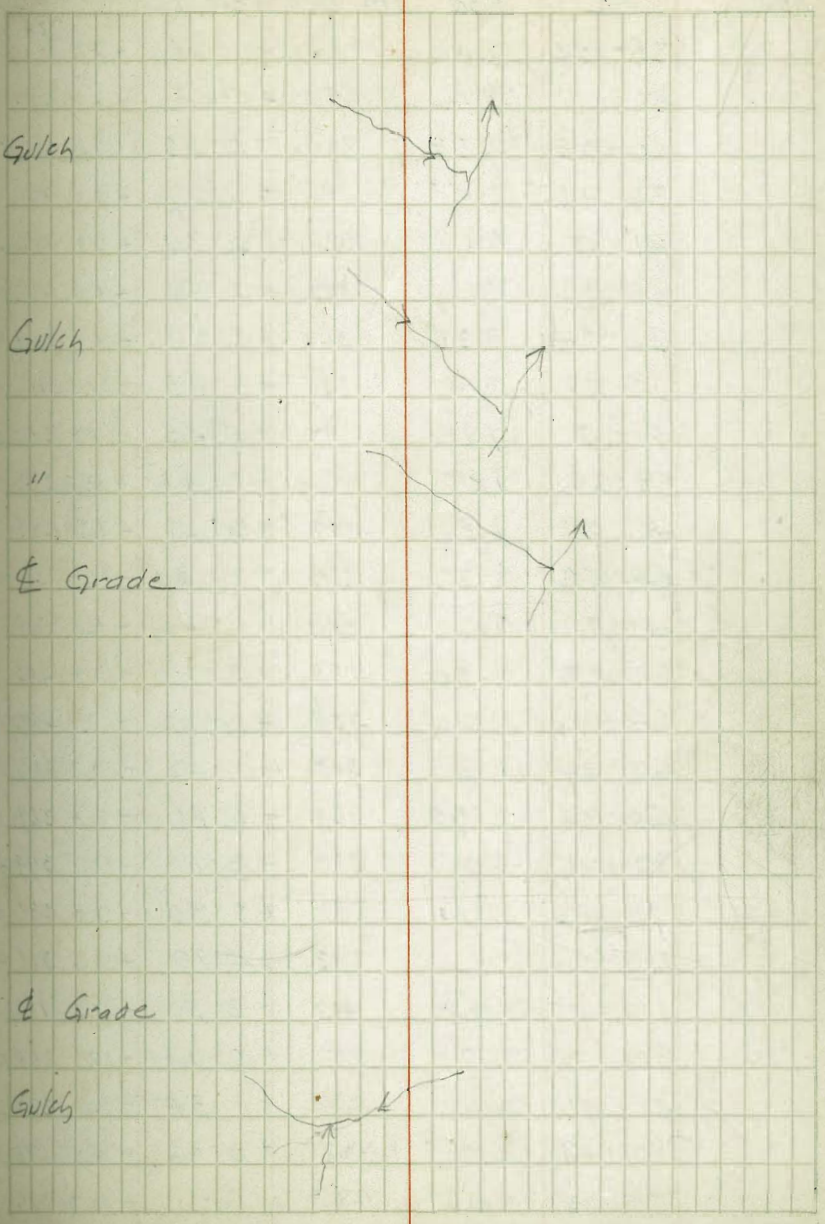 Gulch
Gulch
"
℄ Grade
℄ Grade
Gulch